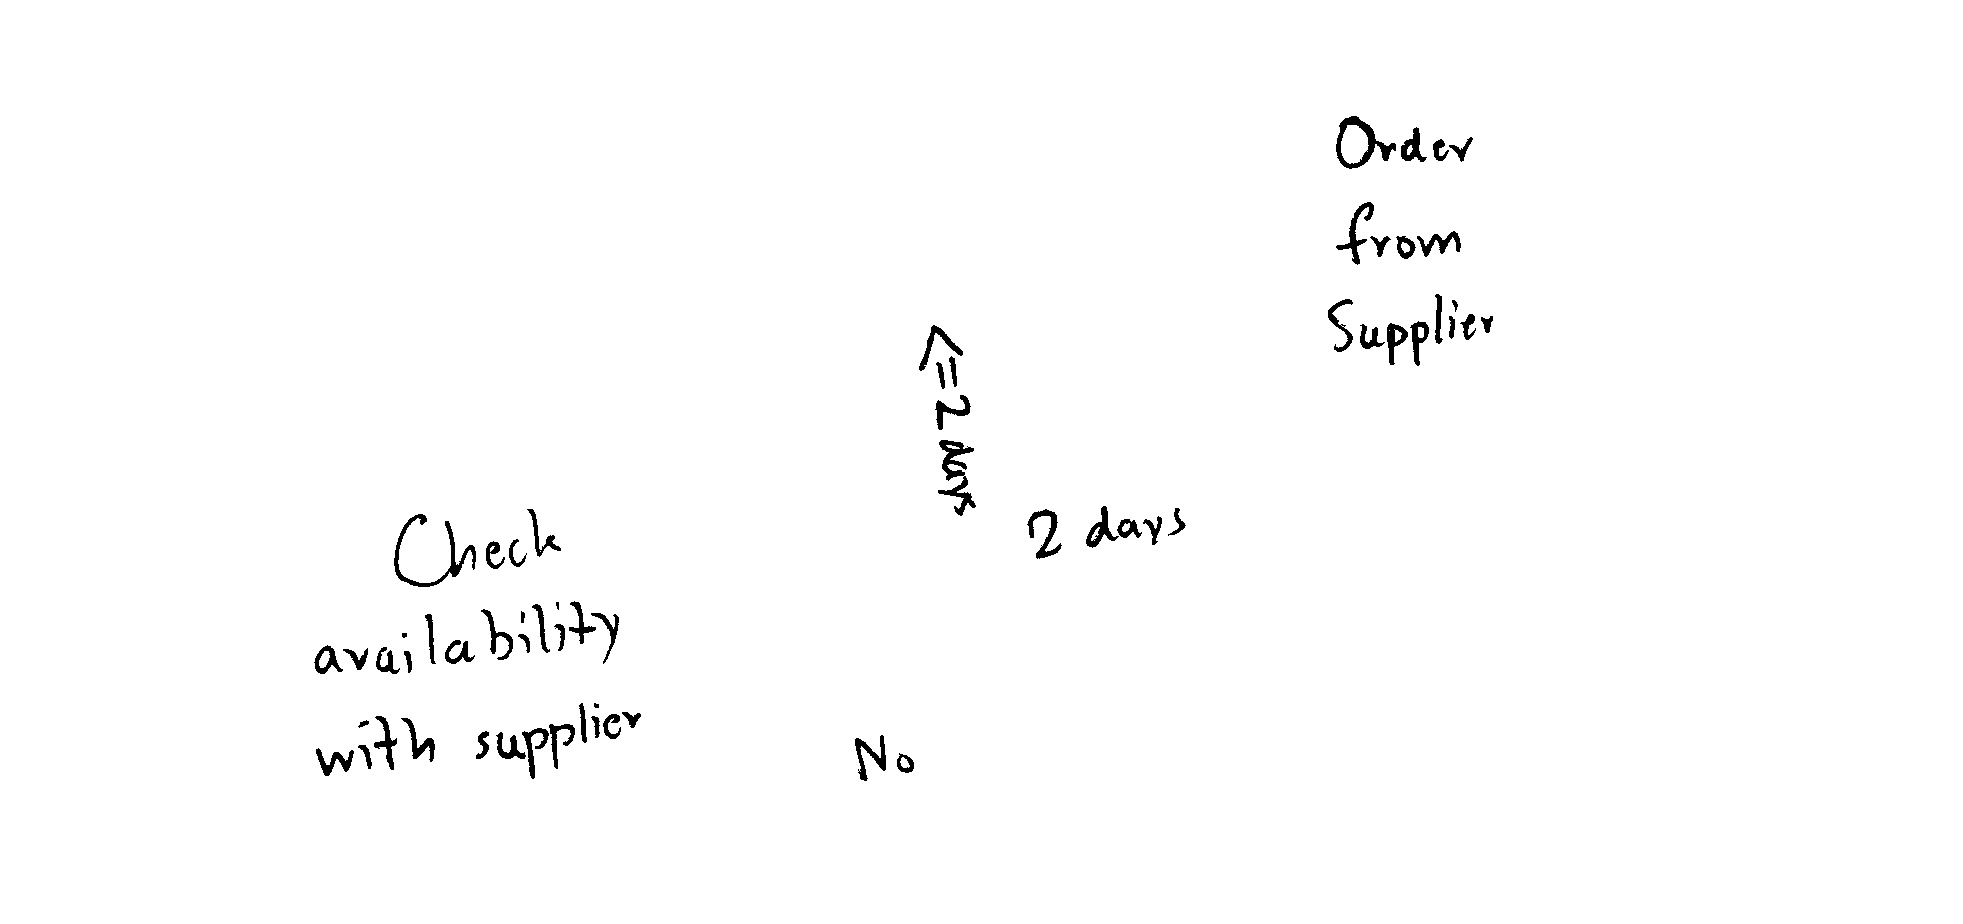 Order
from
Supplier
<=2 days
2 days
Check
availability
with supplier
No